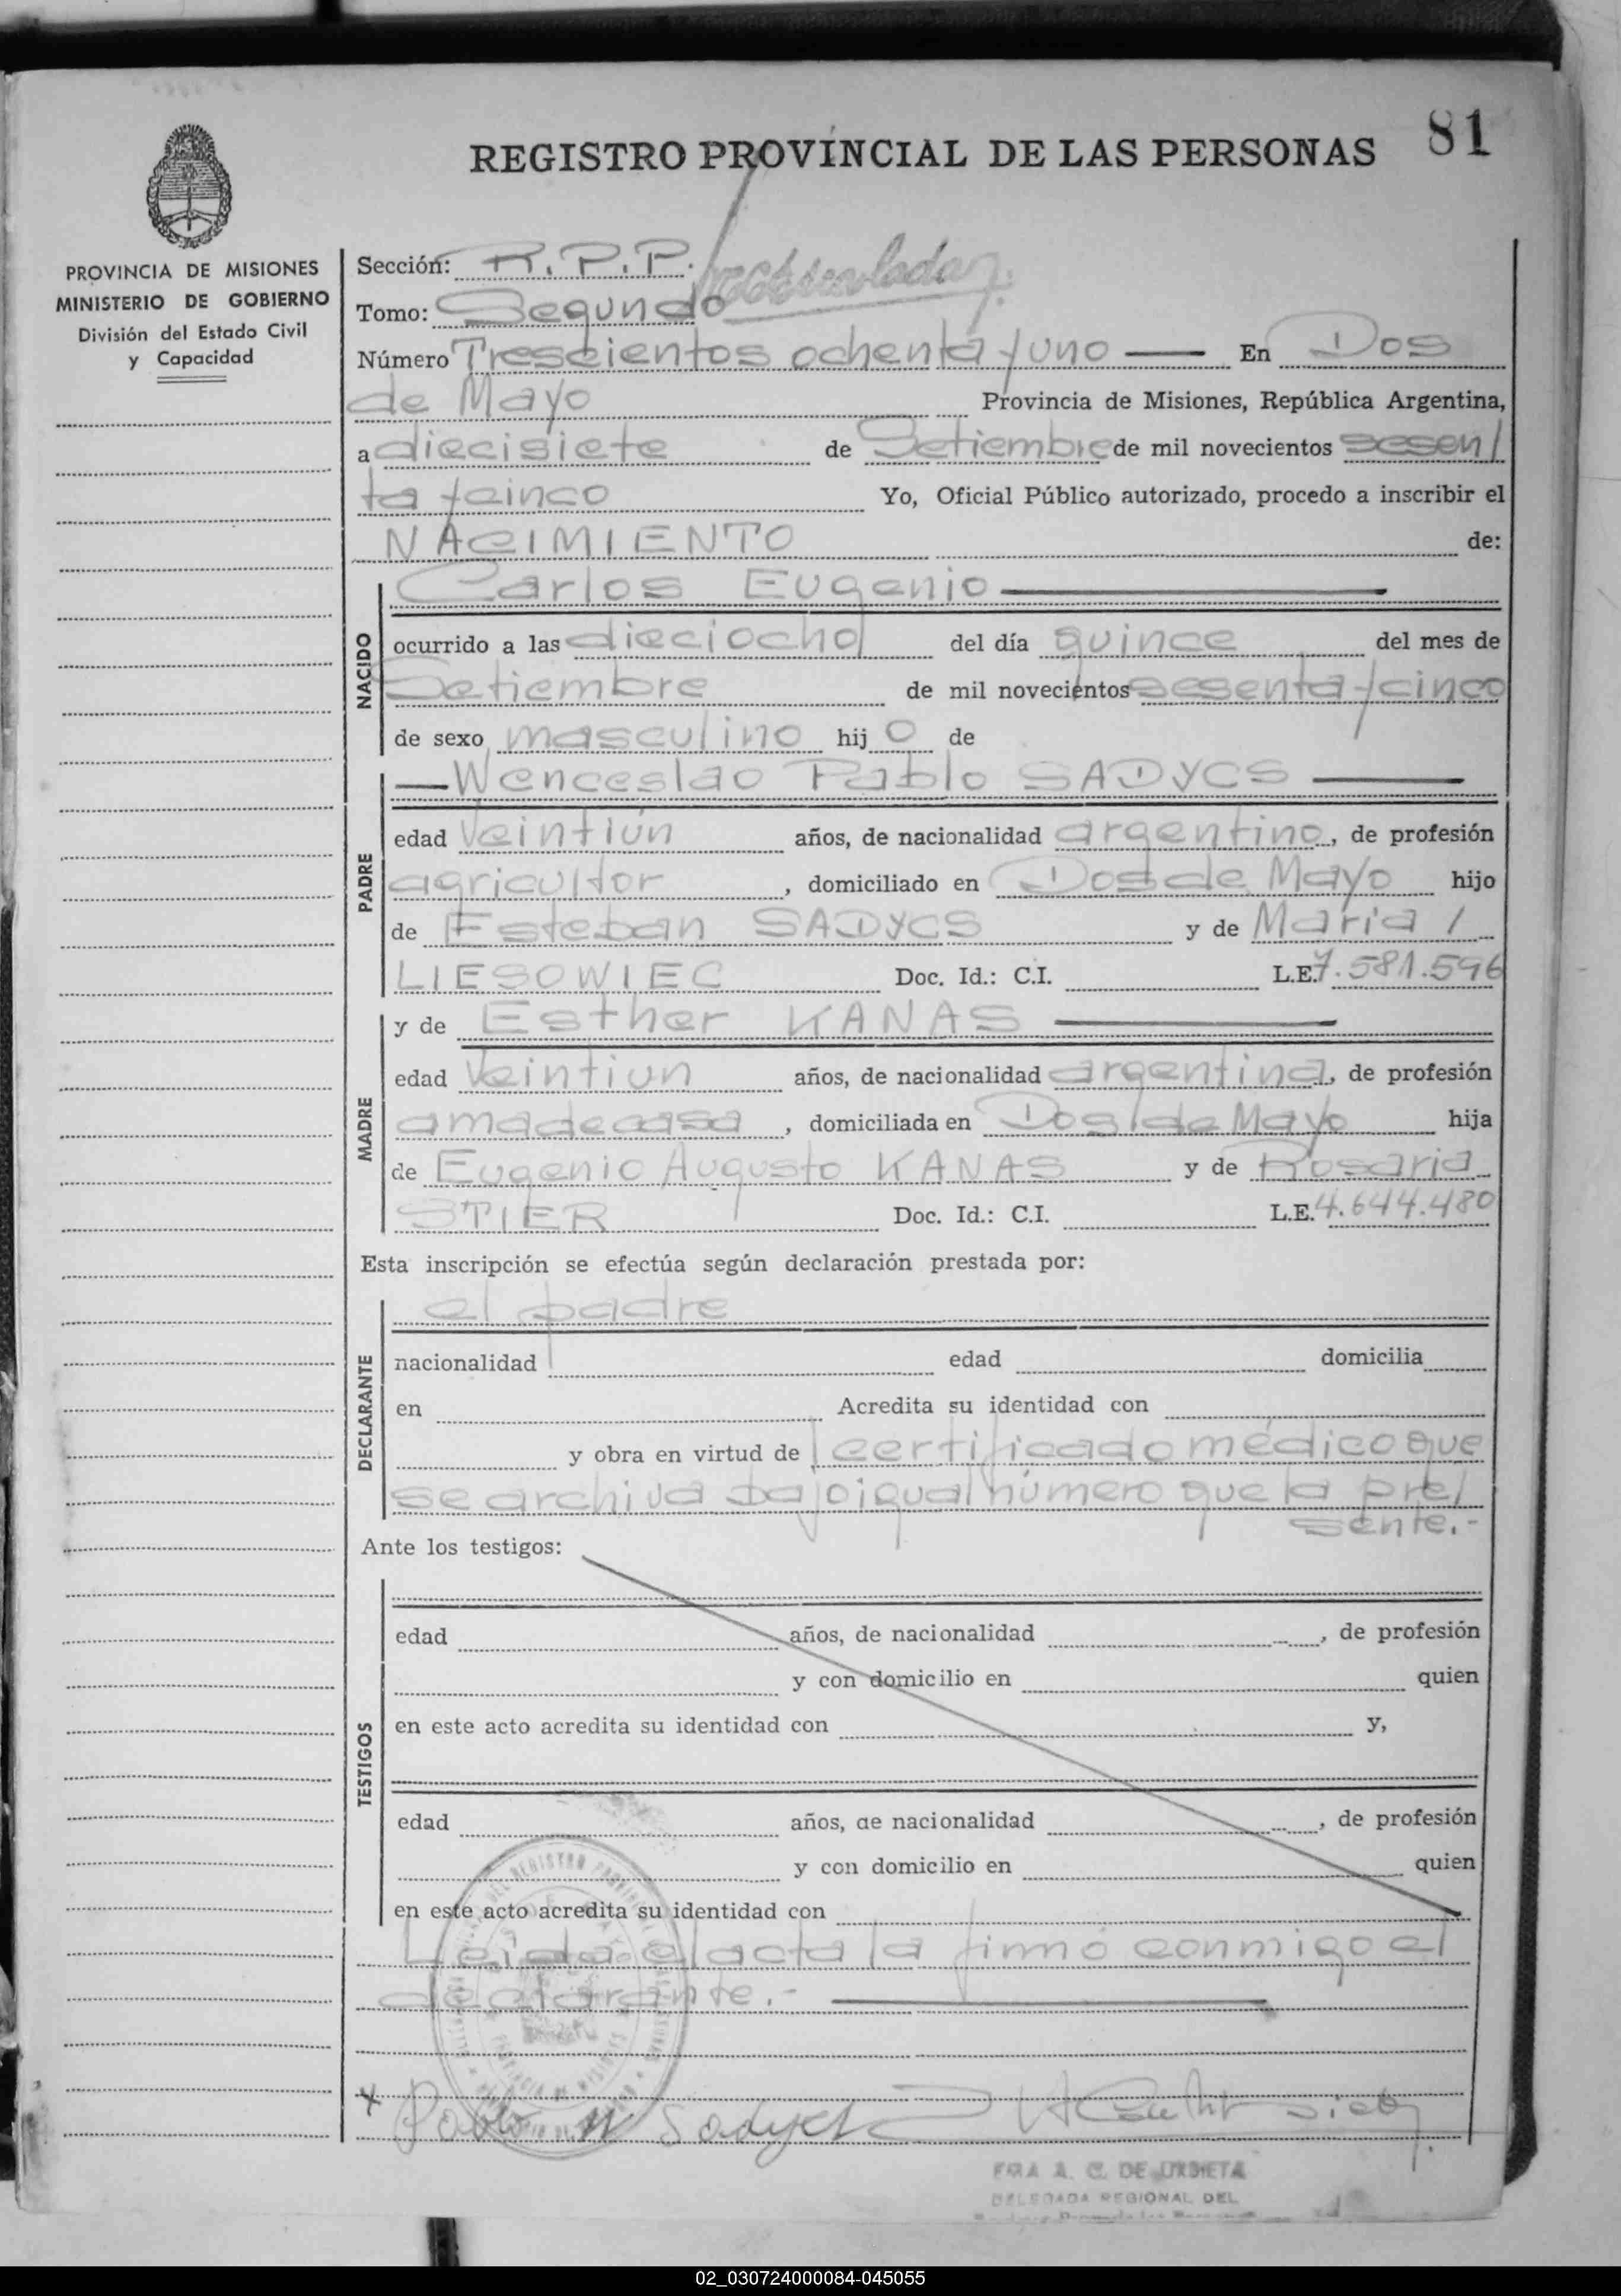 81
REGISTRO PROVINCIAL DE LAS PERSONAS
PROVINCIA DE MISIONES
MINISTERIO DE GOBIERNO
División del Estado Civil
y Capacidad
Sección: R.P.P.
Tomo: Segundo
Número Trescientos ochenta y uno — En Dos
de Mayo Provincia de Misiones, República Argentina,
a diecisiete de Setiembre de mil novecientos sesen/
ta y cinco Yo, Oficial Público autorizado, procedo a inscribir el
NACIMIENTO de:
NACIDO
Carlos Eugenio —
ocurrido a las dieciocho del día quince del mes de
Setiembre de mil novecientos sesenta y cinco
de sexo masculino hijo de
— Wenceslao Pablo SADYCS —
PADRE
edad veintiún años, de nacionalidad argentino, de profesión
agricultor, domiciliado en Dos de Mayo hijo
de Esteban SADYCS y de Maria /
LIESOWIEC Doc. Id.: C.I. L.E. 7.581.596
MADRE
y de Esther KANAS —
edad Veintiun años, de nacionalidad argentina, de profesión
ama de casa, domiciliada en Dos de Mayo hija
de Eugenio Augusto KANAS y de Rosaria
STIER Doc. Id.: C.I. L.E. 4.644.480
Esta inscripción se efectúa según declaración prestada por:
DECLARANTE
el padre
nacionalidad edad domicilia
en Acredita su identidad con
y obra en virtud de certificado médico que
se archiva bajo igual número que la pre/
sente.-
Ante los testigos:
TESTIGOS
edad años, de nacionalidad , de profesión
y con domicilio en quien
en este acto acredita su identidad con y,
edad años, de nacionalidad , de profesión
y con domicilio en quien
en este acto acredita su identidad con
Leida el acta la firmó conmigo el
declarante.- —
Pablo W Sadycs
DE URDIETA
DELEGADA REGIONAL DEL
02_030724000084-045055